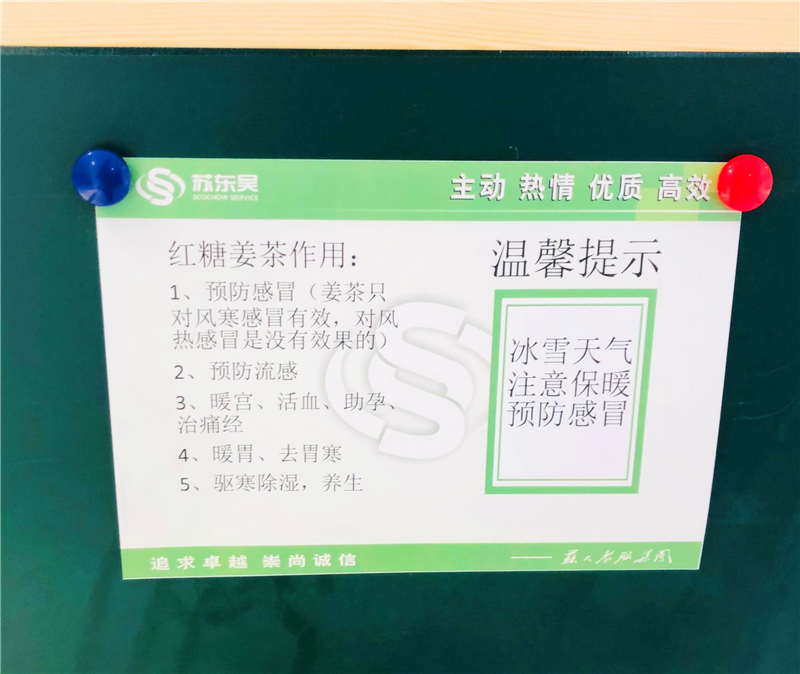 苏东吴
SOOCHOW SERVICE
主动 热情 优质 高效
红糖姜茶作用：
1、预防感冒（姜茶只
对风寒感冒有效，对风
热感冒是没有效果的）
2、预防流感
3、暖宫、活血、助孕、
治痛经
4、暖胃、去胃寒
5、驱寒除湿，养生
温馨提示
冰雪天气
注意保暖
预防感冒
追求卓越 崇尚诚信
——苏大教服集团